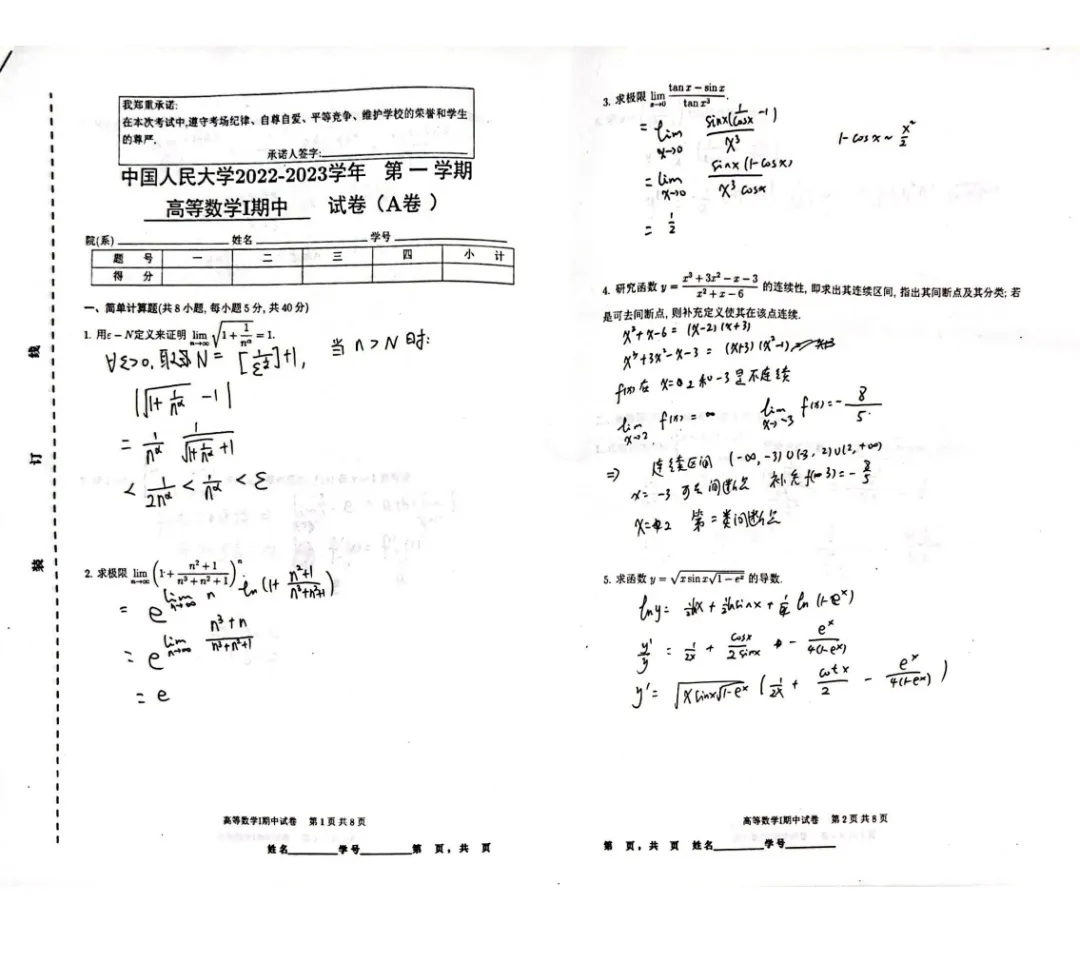 我郑重承诺:
在本次考试中,遵守考场纪律、自尊自爱、平等竞争、维护学校的荣誉和学生
的尊严.
承诺人签字:
中国人民大学2022-2023学年 第一学期
高等数学I期中 试卷（A卷）
院(系) 姓名 学号
题号 一 二 三 四 小计
得分
一、简单计算题(共8小题, 每小题5分, 共40分)
1. 用ε − N定义来证明 lim_{n→∞} √(1 + 1/n^α) = 1.
∀ε>0, 取 N = [1/ε^{1/α}]+1, 当 n > N 时:
|√(1+1/n^α) -1|
= 1/n^α · 1/(√(1+1/n^α)+1)
< 1/(2n^α) < 1/n^α < ε
2. 求极限 lim_{n→∞} (1 + (n²+1)/(n³+n²+1))^n.
= e^{lim_{n→∞} n ln(1+ (n²+1)/(n³+n²+1))}
= e^{lim_{n→∞} (n³+n)/(n³+n²+1)}
= e
高等数学I期中试卷 第1页共8页
姓名 学号 第 页, 共 页
线
订
装
3. 求极限 lim_{x→0} (tan x − sin x)/(tan x³).
= lim_{x→0} sinx(1/cosx -1)/x³
1-cosx ~ x²/2
= lim_{x→0} sinx(1-cosx)/(x³cosx)
= 1/2
4. 研究函数 y = (x³+3x²−x−3)/(x²+x−6) 的连续性, 即求出其连续区间, 指出其间断点及其分类; 若
是可去间断点, 则补充定义使其在该点连续.
x²+x-6 = (x-2)(x+3)
x³+3x²-x-3 = (x+3)(x²-1)
f(x)在 x=2 和 -3 是不连续
lim_{x→2} f(x) = ∞ lim_{x→-3} f(x) = -8/5
⇒ 连续区间 (-∞,-3)∪(-3,2)∪(2,+∞)
x=-3 可去间断点 补充f(-3)=-8/5
x=2 第二类间断点
5. 求函数 y = √(x sin x√(1−e^x)) 的导数.
lny= ½lnx + ½lnsinx + ¼ ln(1-e^x)
y'/y = 1/2x + cosx/2sinx - e^x/4(1-e^x)
y'= √(xsinx√(1-e^x)) (1/2x + cotx/2 - e^x/4(1-e^x))
高等数学I期中试卷 第2页共8页
第 页, 共 页 姓名 学号